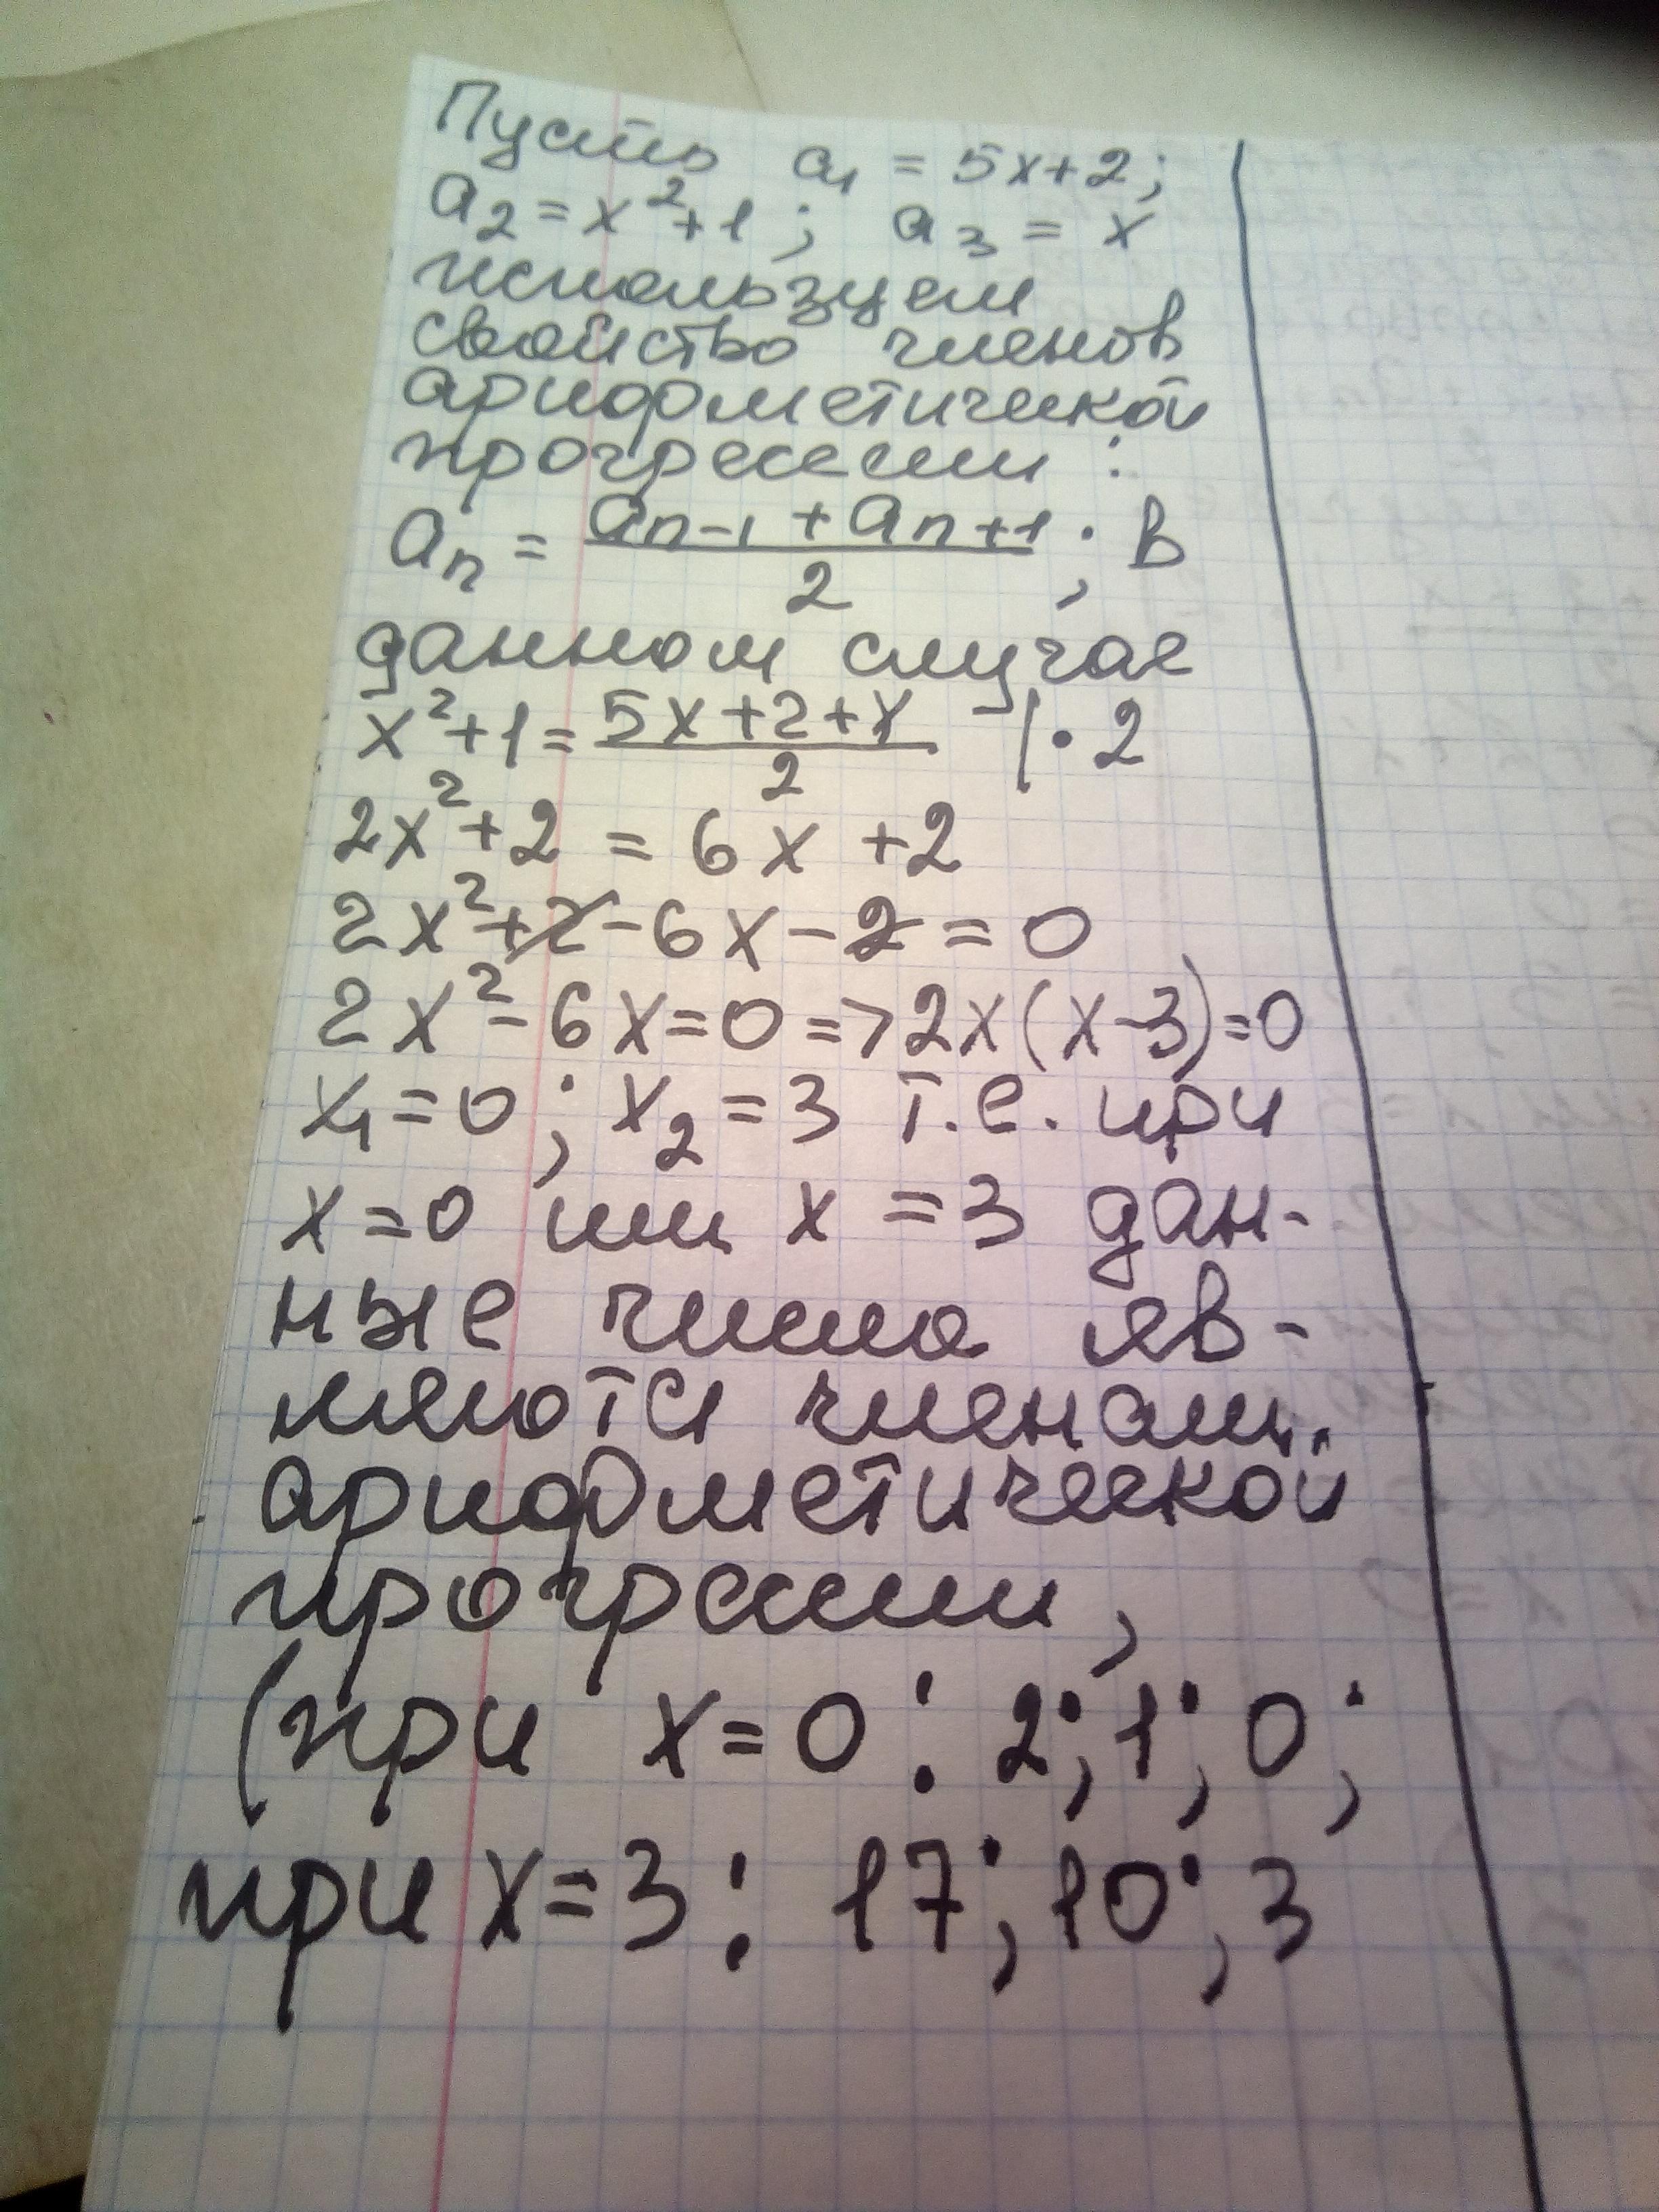 Пусть a₁ = 5x+2;
a₂ = x²+1; a₃ = x
используем
свойство членов
арифметической
прогрессии:
aₙ = (aₙ₋₁ + aₙ₊₁)/2; в
данном случае
x²+1 = (5x+2+x)/2 |·2
2x²+2 = 6x+2
2x²+2-6x-2=0
2x²-6x=0 => 2x(x-3)=0
x₁=0; x₂=3 т.е. при
x=0 или x=3 дан-
ные числа яв-
ляются членами
арифметической
прогрессии,
(при x=0: 2; 1; 0;
при x=3: 17; 10; 3